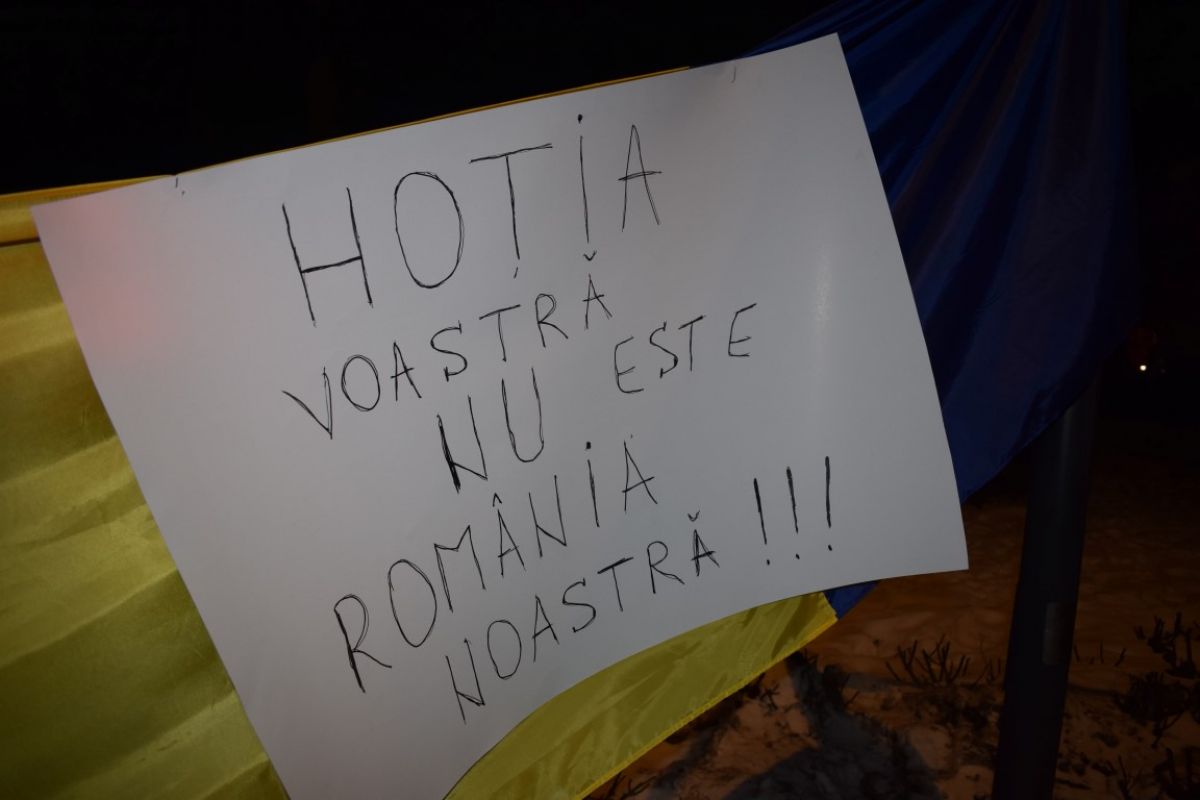 HOȚIA
VOASTRĂ
NU ESTE
ROMÂNIA
NOASTRĂ !!!